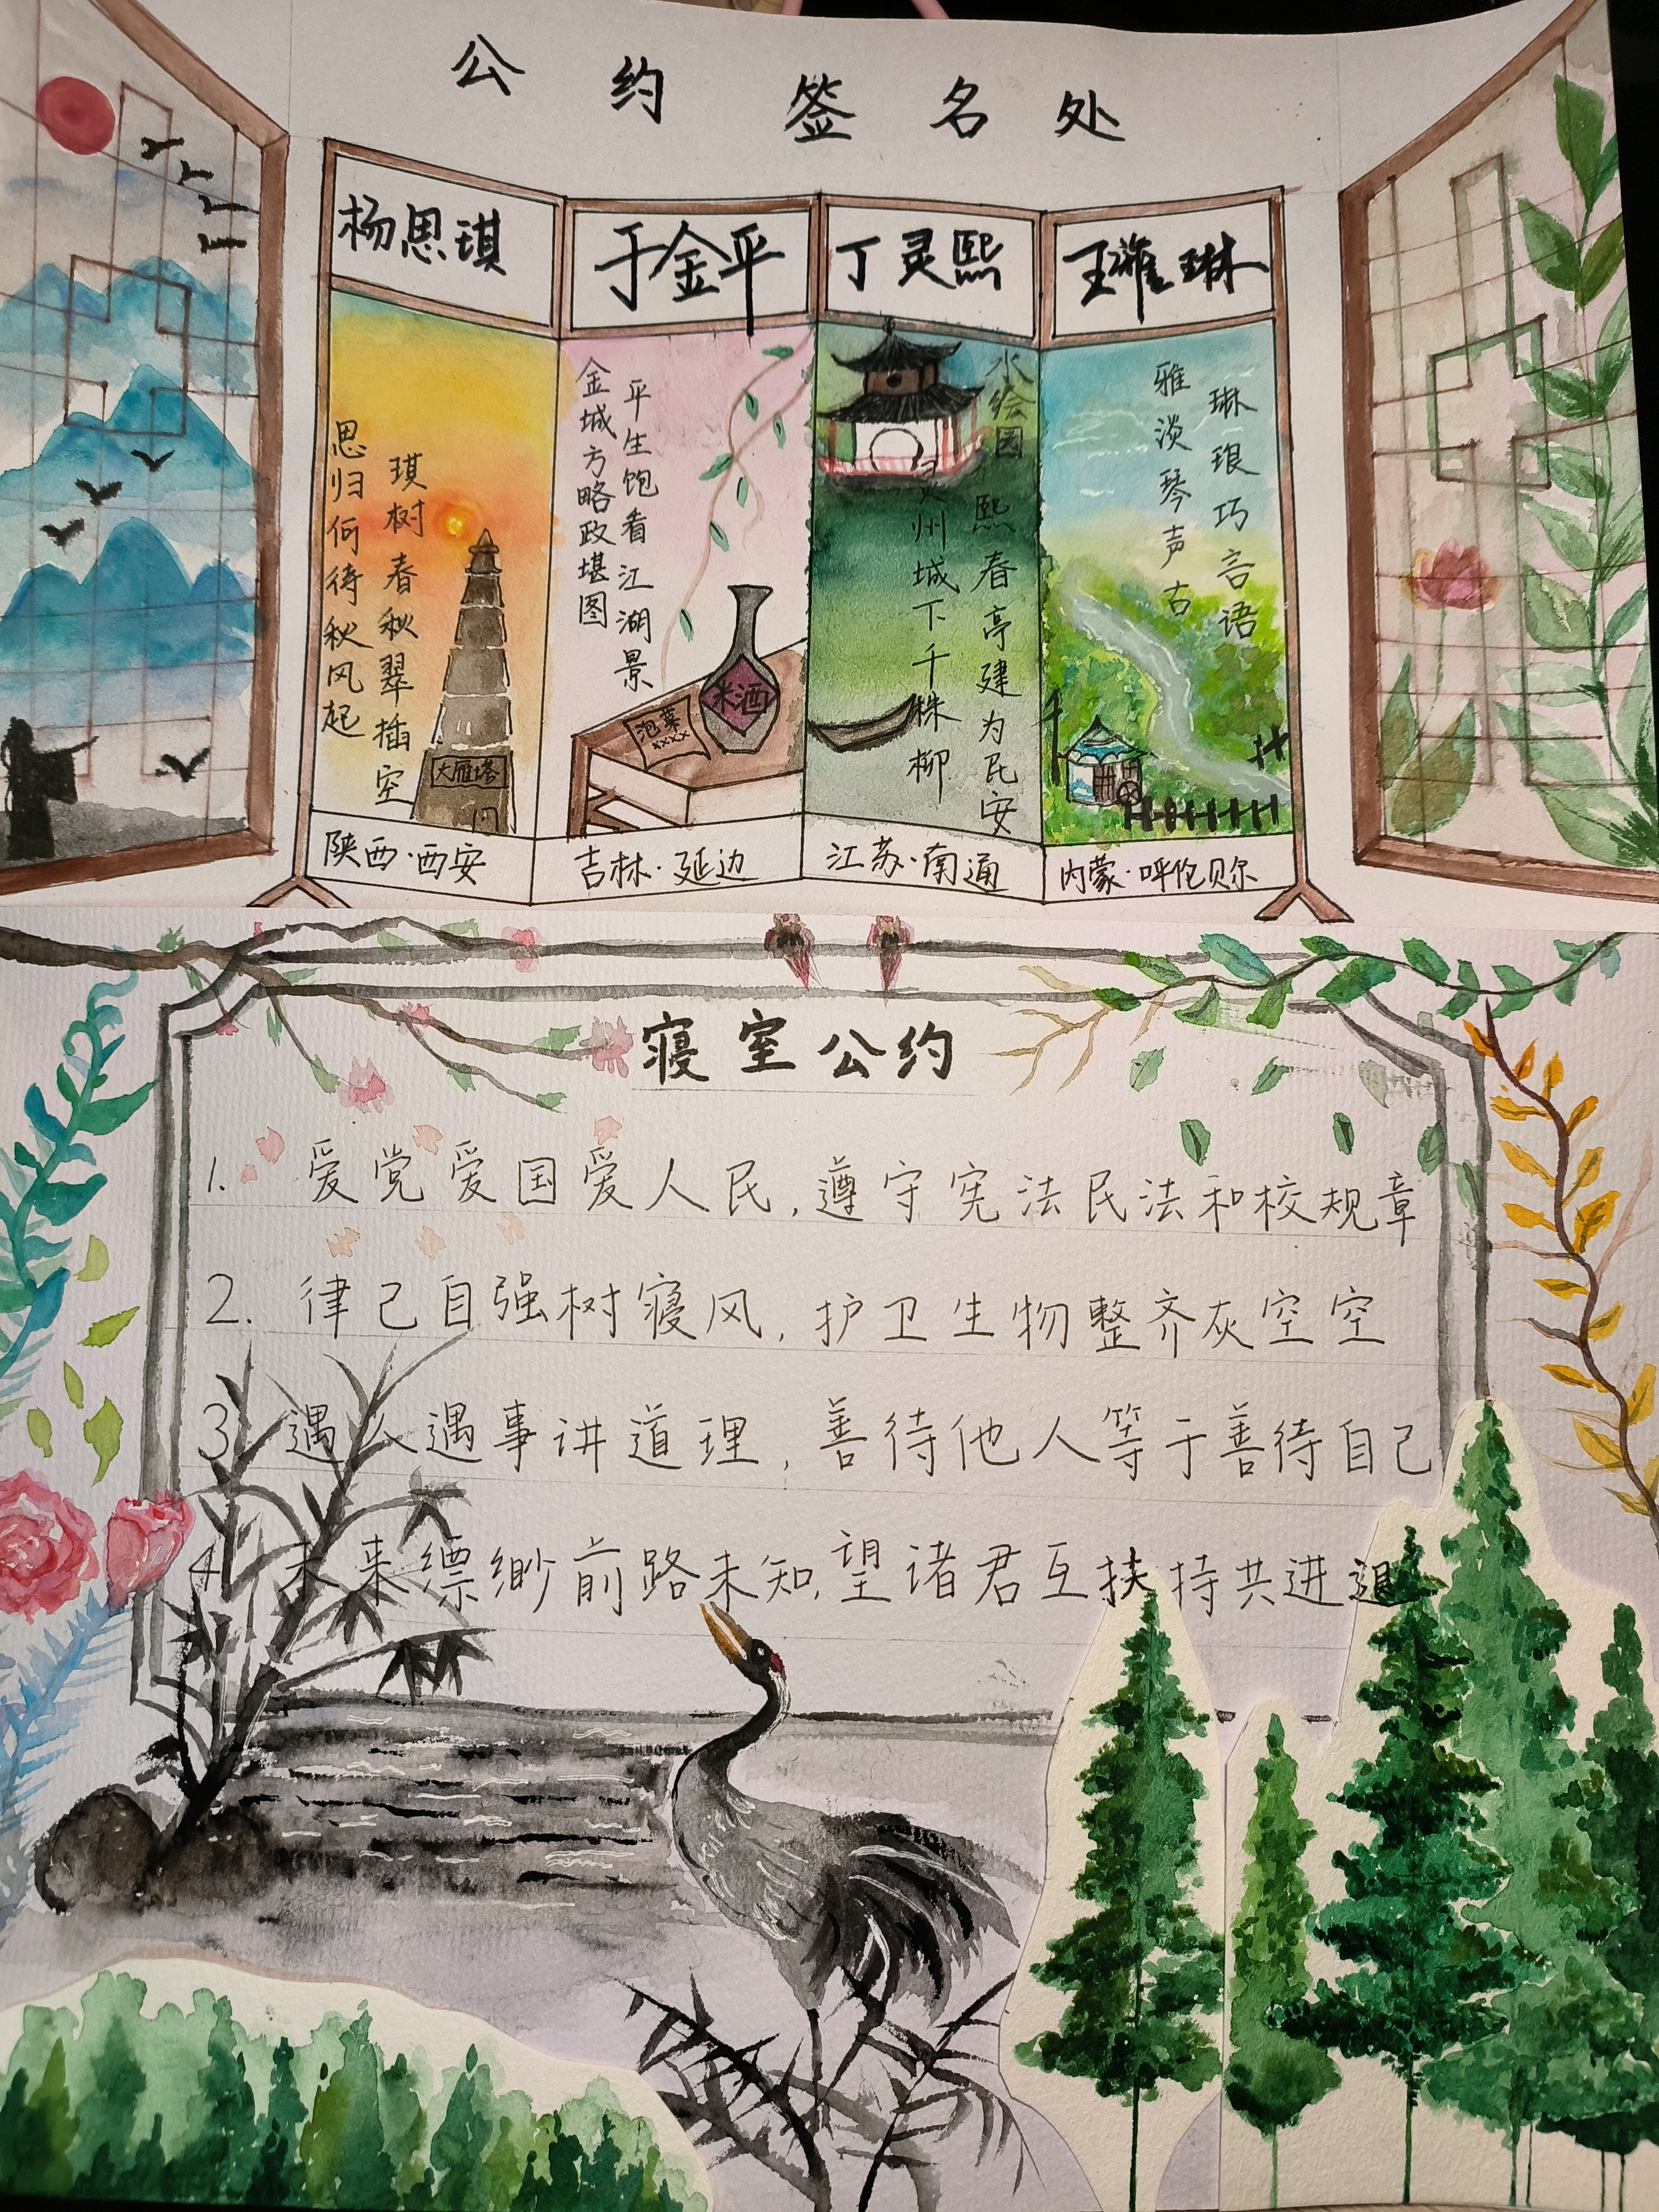 公约签名处
杨思琪
于金平
丁灵熙
王雅琳
思归何待秋风起
琪树春秋翠插空
大雁塔
金城方略政堪图
平生饱看江湖景
泡菜
xxxx
米酒
水绘园
灵州城下千株柳
熙春亭建为民安
雅淡琴声古
琳琅巧言语
陕西·西安
吉林·延边
江苏·南通
内蒙·呼伦贝尔
寝室公约
1. 爱党爱国爱人民,遵守宪法民法和校规章
2. 律己自强树寝风,护卫生物整齐灰空空
3. 遇人遇事讲道理,善待他人等于善待自己
4. 未来缥缈前路未知,望诸君互扶持共进退